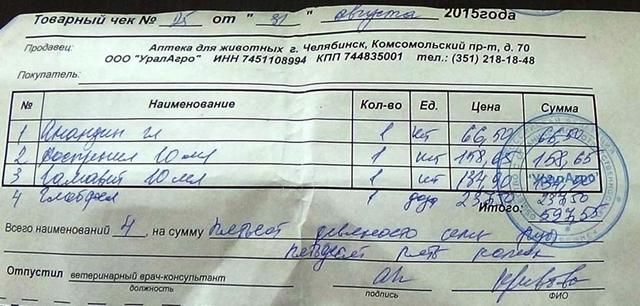 Товарный чек № 25 от "31" августа 2015года
Продавец: Аптека для животных г. Челябинск, Комсомольский пр-т, д. 70
ООО "УралАгро" ИНН 7451108994 КПП 744835001 тел.: (351) 218-18-48
Покупатель:
№ Наименование Кол-во Ед. Цена Сумма
1 Анандин гл 1 шт 66,50 66,50
2 10 мл 1 шт 158,65 158,65
3 Гамавит 10 мл 1 шт 134,90 134,90
4 1 доза 237,50 237,50
Итого: 597,55
"УралАгро"
Всего наименований 4, на сумму пятьсот девяносто семь руб
пятьдесят пять копеек
Отпустил ветеринарный врач-консультант
должность подпись ФИО